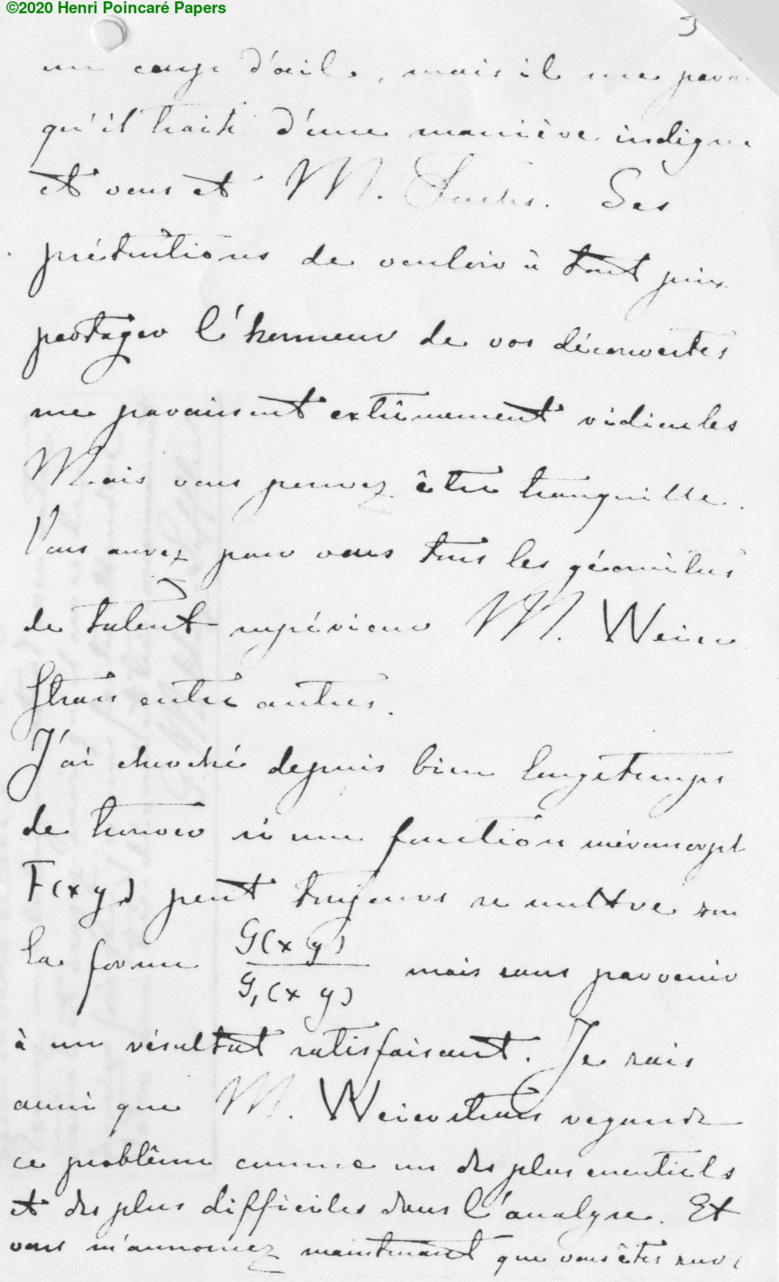 ©2020 Henri Poincaré Papers
3
un coup d'œil, mais il me parai
qu'il traite d'une manière indigne
et vous et M. Fuchs. Ses
prétentions de vouloir à tout prix
partager l'honneur de vos découvertes
me paraissent extrêmement ridicules
Mais vous pouvez être tranquille.
Vous aurez pour vous tous les géomètres
de talent supérieur M. Weier
strass entre autres.
J'ai cherché depuis bien longtemps
de trouver si une fonction méromorph
F(x y) peut toujours se mettre sous
la forme G(x y) / G₁(x y) mais sans parvenir
à un résultat satisfaisant. Je sais
aussi que M. Weierstrass regarde
ce problème comme un des plus essentiels
et des plus difficiles dans l'analyse. Et
vous m'annoncez maintenant que vous êtes